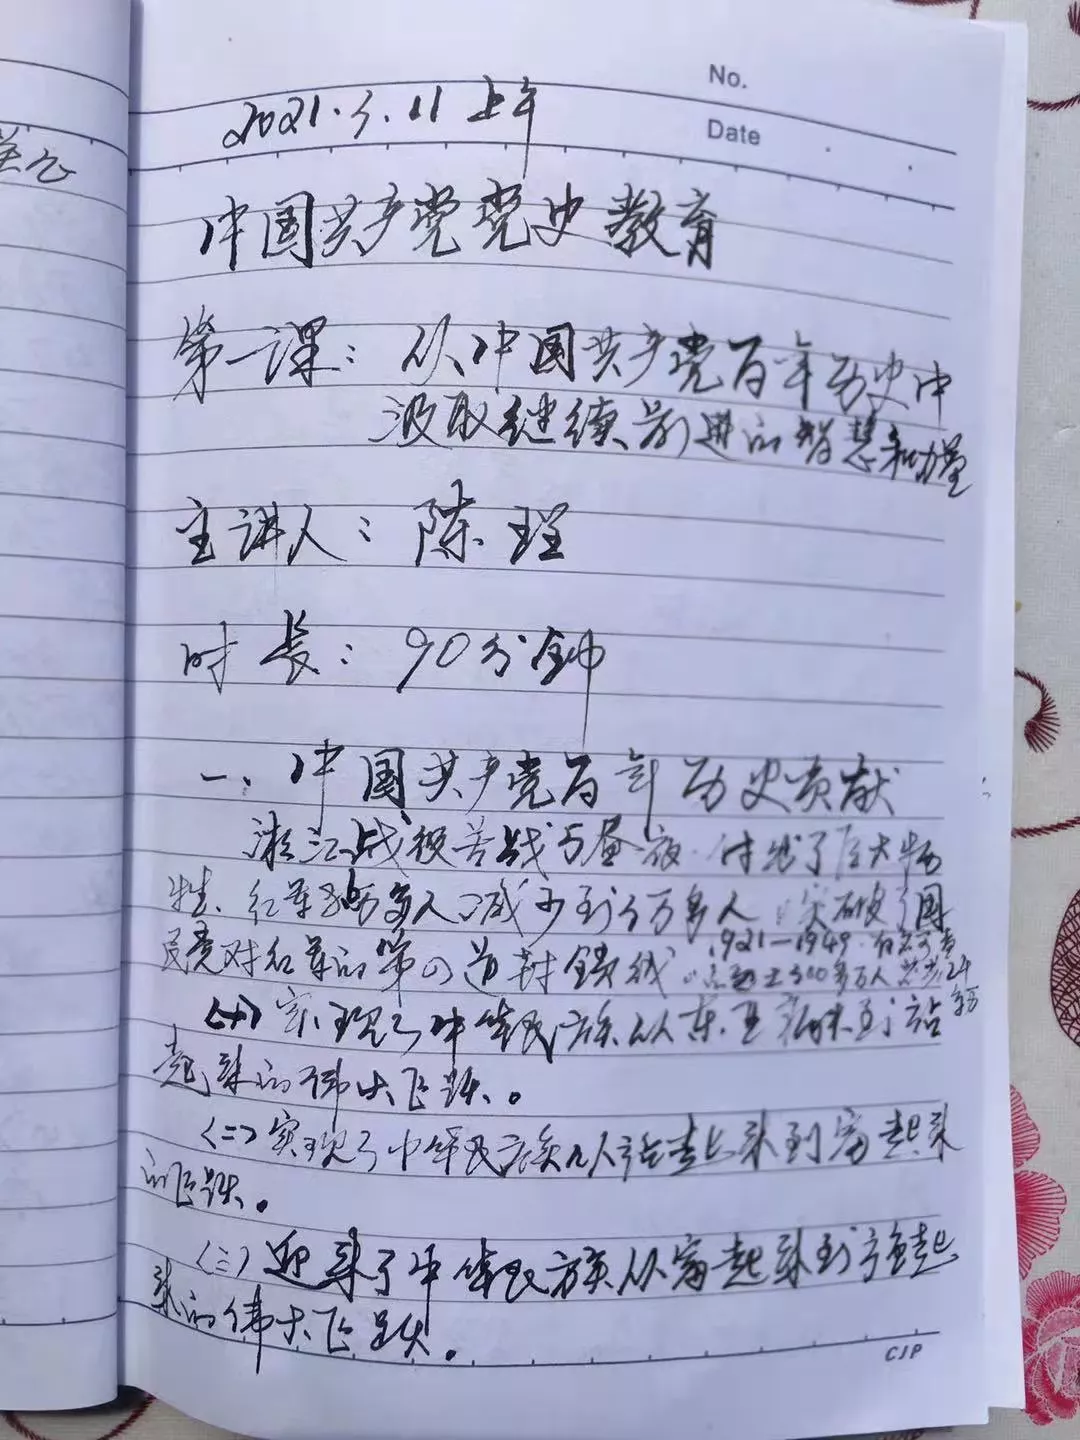 No.
Date
2021.5.11 上午
中国共产党党史教育
第一课：从中国共产党百年历史中
汲取继续前进的智慧和力量
主讲人：陈理
时长：90分钟
一、中国共产党百年历史贡献
湘江战役苦战5昼夜.付出了巨大牺
牲、红军8万多人减少到3万多人，突破了国
民党对红军的第四道封锁线
1921—1949.有名可查
烈士300多万人
(一)实现了中华民族从东亚病夫到站
起来的伟大飞跃。
(二)实现了中华民族从站起来到富起来
的飞跃。
(三)迎来了中华民族从富起来到强起
来的伟大飞跃。
CJP